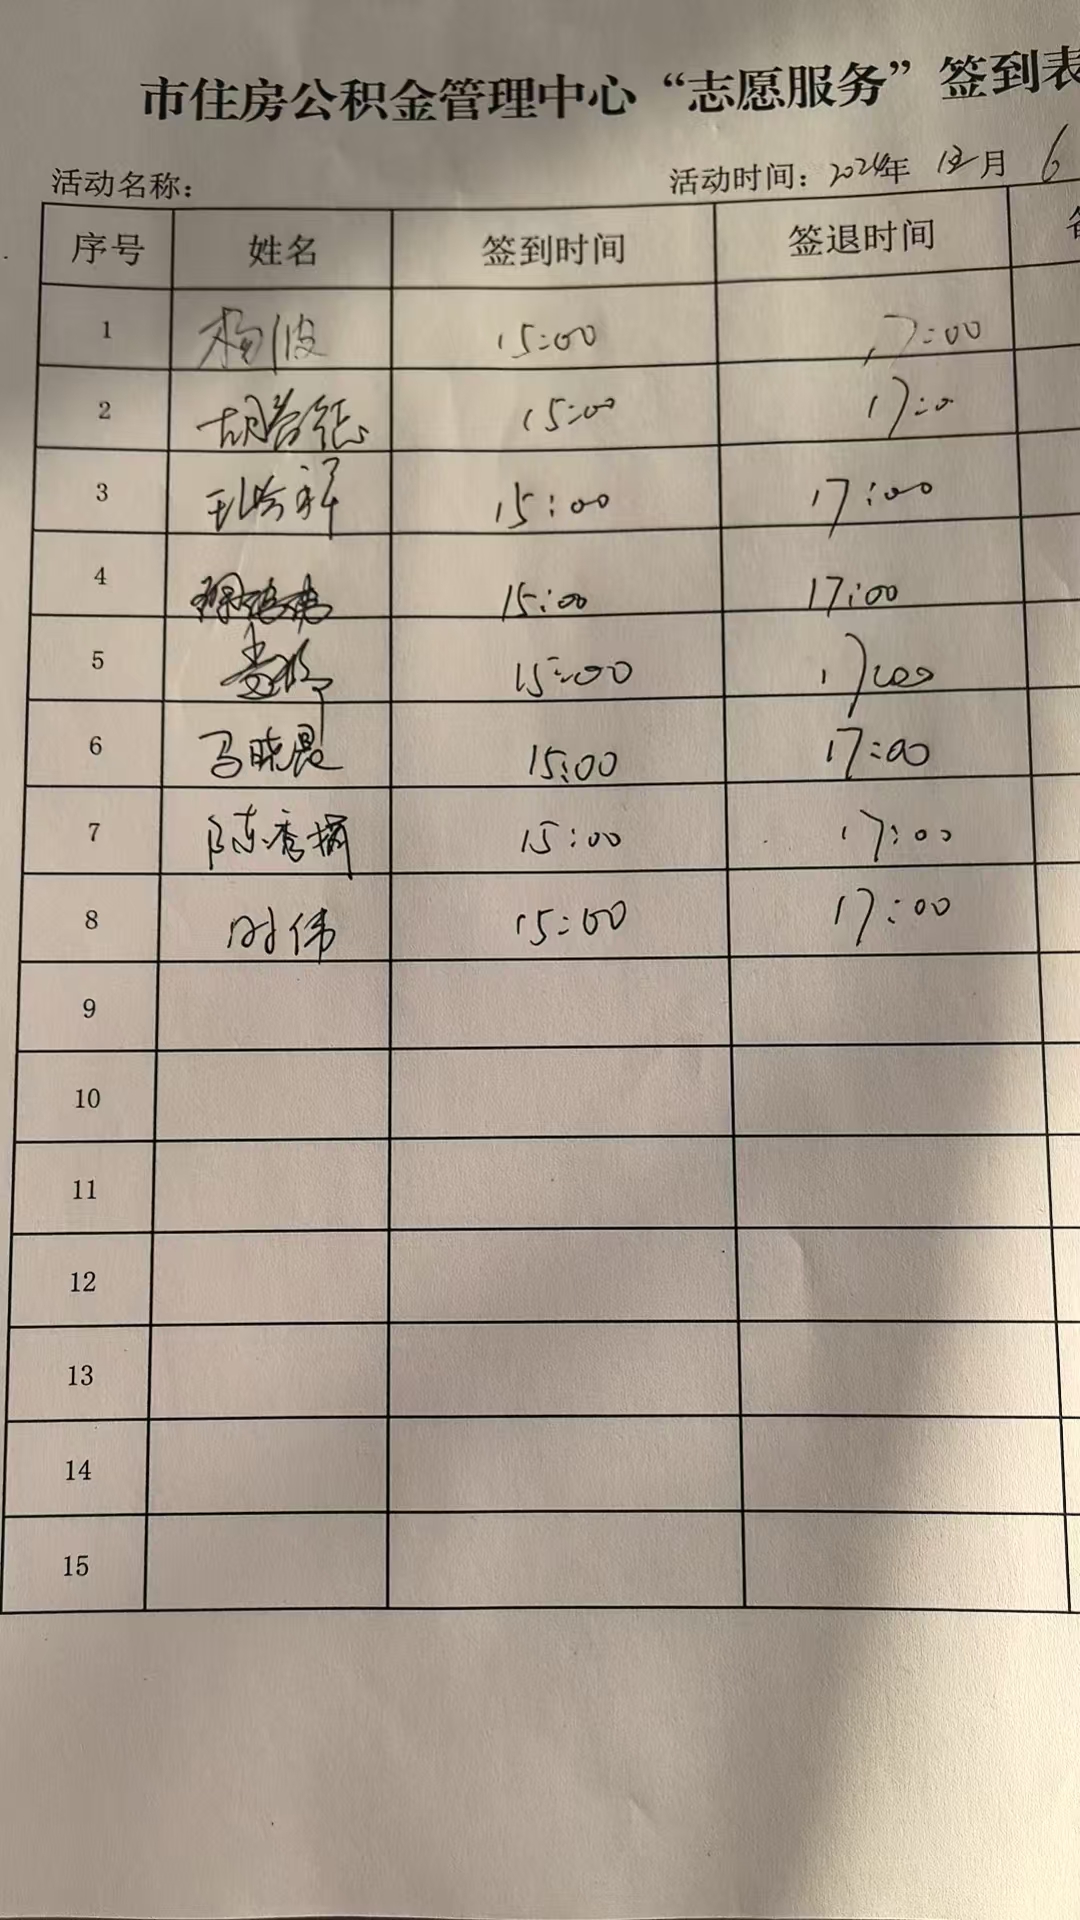 市住房公积金管理中心“志愿服务”签到表
活动名称： 活动时间：2024年 12月 6
序号 姓名 签到时间 签退时间
1 杨波 15:00 17:00
2 胡 15:00 17:0
3 孔 祥 15:00 17:00
4 15:00 17:00
5 15:00 17:00
6 马晓晨 15:00 17:00
7 陈秀娟 15:00 17:00
8 时伟 15:00 17:00
9
10
11
12
13
14
15